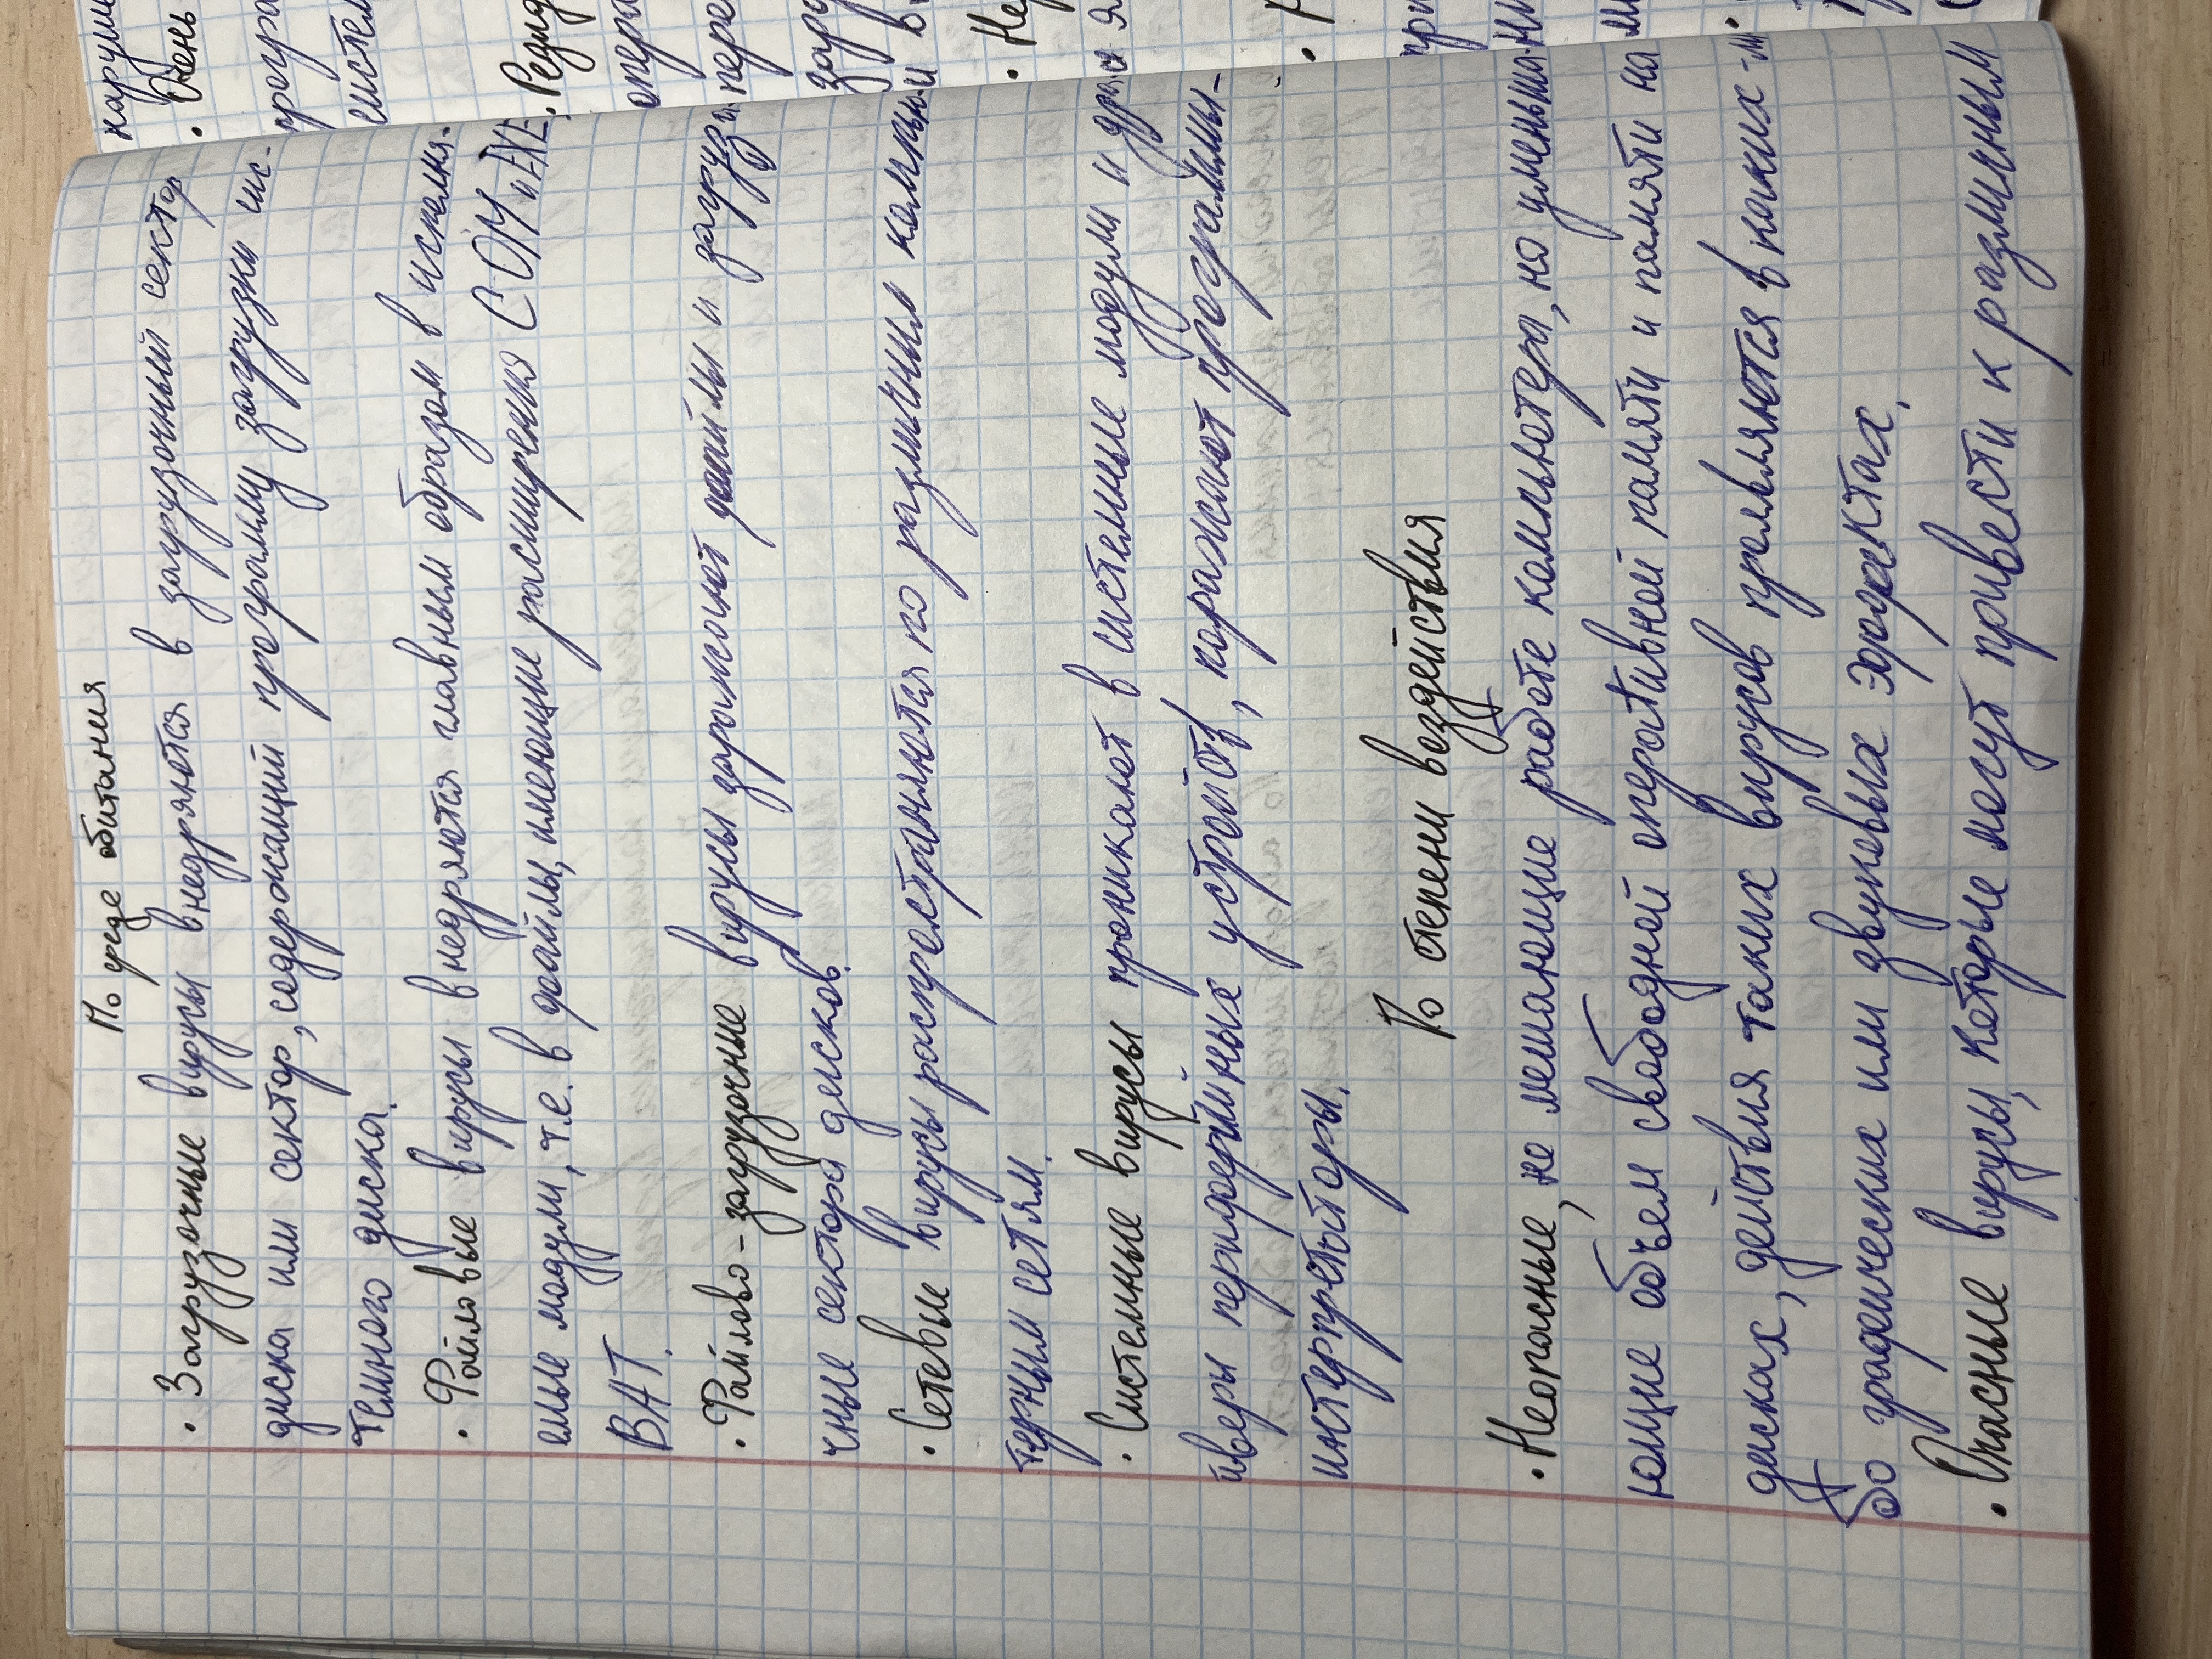 По среде обитания
• Загрузочные вирусы внедряются в загрузочный сектор
диска или сектор, содержащий программу загрузки сис-
темного диска.
• Файловые вирусы внедряются главным образом в исполня-
емые модули, т.е. в файлы, имеющие расширения COM и EXE,
BAT.
• Файлово-загрузочные вирусы заражают файлы и загрузо-
чные сектора дисков.
• Сетевые вирусы распространяются по различным компью-
терным сетям.
• Системные вирусы проникают в системные модули и дра-
йверы периферийных устройств, поражают программы-
интерпретаторы.
По степени воздействия
• Неопасные, не мешающие работе компьютера, но уменьша-
ющие объем свободной оперативной памяти и памяти на
дисках, действия таких вирусов проявляются в каких-ли-
бо графических или звуковых эффектах.
• Опасные вирусы, которые могут привести к различным
наруше
• Очень
програ
систем
• Резид
опера
пере
зару
• Не
• Р